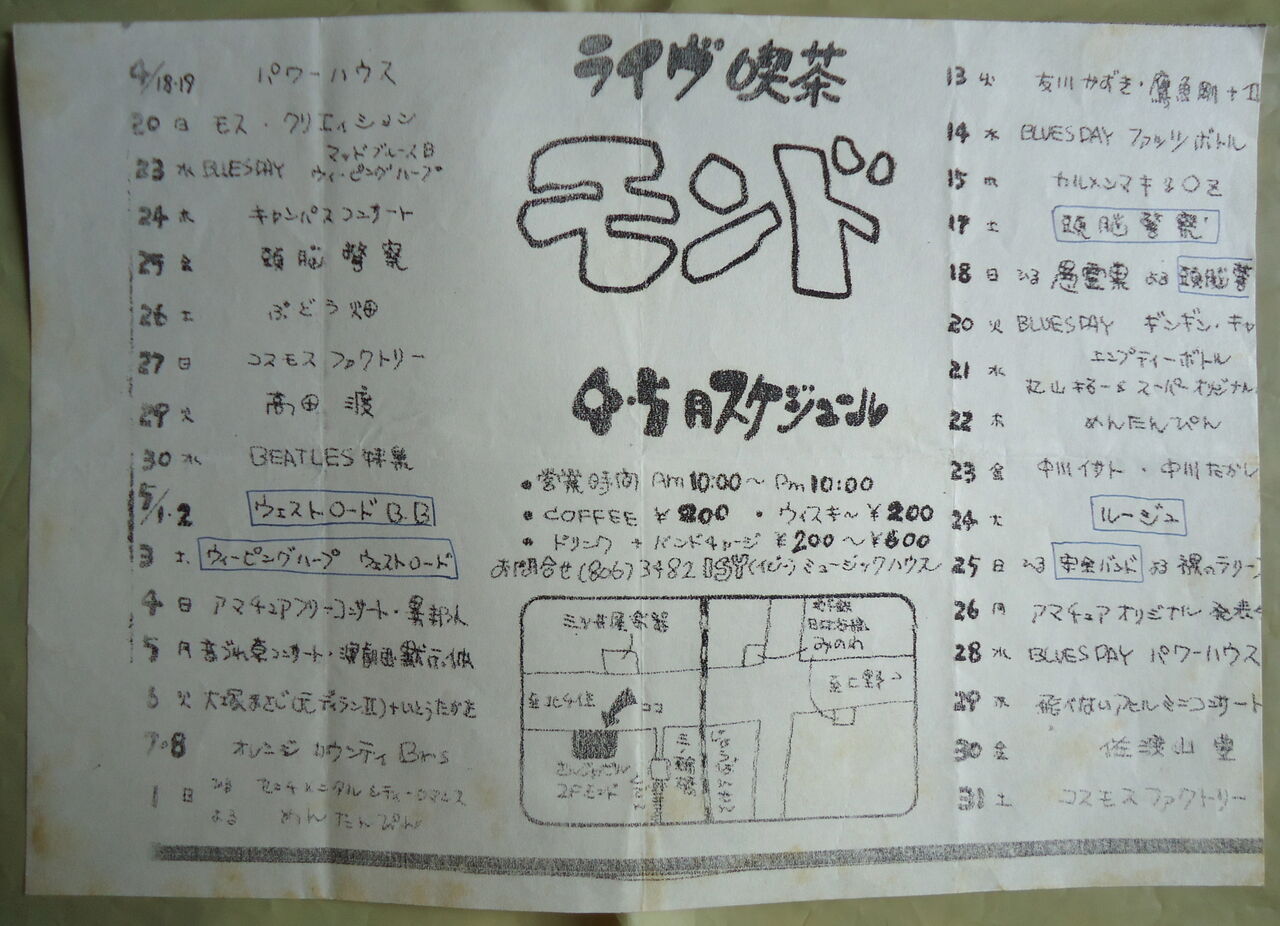 4/18・19 パワーハウス
20 日 モス・クリエイション
23 水 BLUESDAY マッドブルースB
ウィーピングハープ
24 木 キャンパスコンサート
25 金 頭脳警察
26 土 ぶどう畑
27 日 コスモスファクトリー
29 火 高田渡
30 水 BEATLES特集
5/1・2 ウェストロードB.B
3 土 ウィーピングハープ ウェストロード
4 日 アマチュアフリーコンサート・異邦人
5 月
6 火 大塚まさじ(元ディランⅡ)+いとうたかを
7・8 オレンジカウンティBros
1 日 ひる センチメンタルシティーロマンス
よる めんたんぴん
ライヴ喫茶
モンド
4・5月スケジュール
・営業時間 Am10:00〜Pm10:00
・COFFEE ¥200 ・ウィスキー¥200
・ドリンク+バンドチャージ ¥200〜¥600
お問合せ(806)3482 ISY(イジー)ミュージックハウス
三ツ井屋楽器
地下鉄
日比谷線
みのわ
至上野
至北千住
ココ
2Fモンド
13 火 友川かずき・鷹魚剛+
14 水 BLUESDAY ファッツボトル
15 木 カルメンマキ&OZ
17 土 頭脳警察
18 日 ひる 愚霊巣 よる 頭脳警
20 火 BLUESDAY ギンギン・キャ
21 水 エンプティーボトル
丸山きるー&スーパーオリジナル
22 木 めんたんぴん
23 金 中川イサト・中川たかし
24 土 ルージュ
25 日 ひる 安全バンド よる 裸のラリー
26 月 アマチュアオリジナル発表
28 水 BLUESDAY パワーハウス
29 木 飛べないアヒルミニコンサート
30 金 佐渡山豊
31 土 コスモスファクトリー